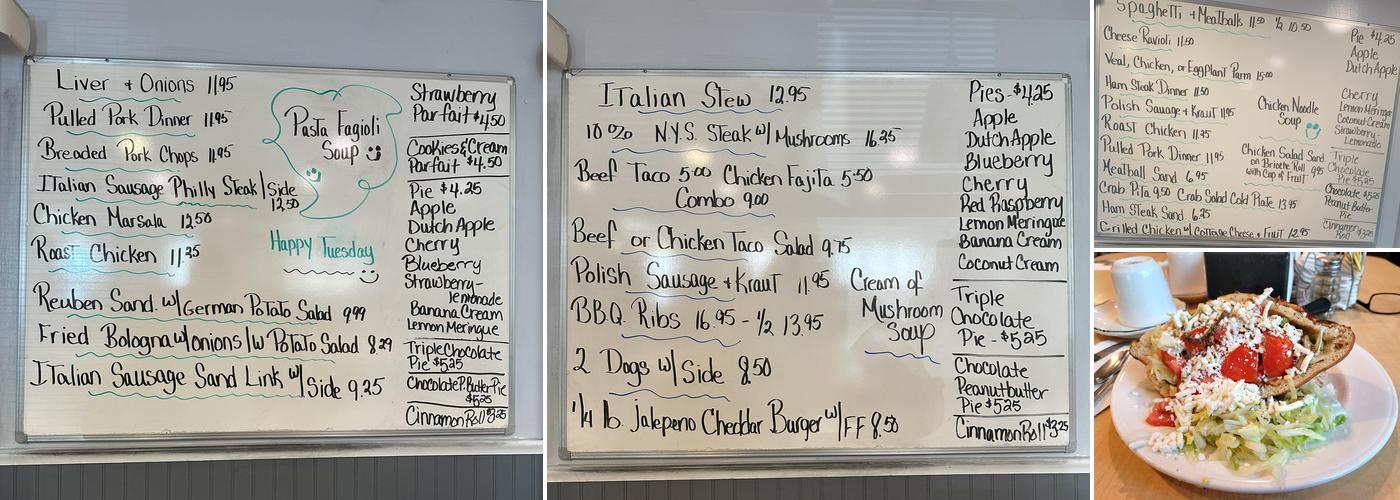 Liver + Onions 11.95
Pulled Pork Dinner 11.95
Breaded Pork Chops 11.95
Italian Sausage Philly Steak/Side
12.50
Chicken Marsala 12.50
Roast Chicken 11.25
Reuben Sand. w/German Potato Salad 9.99
Fried Bologna w/onions/w Potato Salad 8.29
Italian Sausage Sand Link w/Side 9.25
Pasta Fagioli
Soup
Happy Tuesday
Strawberry
Parfait $4.50
Cookies & Cream
Parfait $4.50
Pie $4.25
Apple
Dutch Apple
Cherry
Blueberry
Strawberry-
lemonade
Banana Cream
Lemon Meringue
Triple Chocolate
Pie $5.25
Chocolate P. Butter Pie
$5.25
Cinnamon Roll $3.25
Italian Stew 12.95
10 oz N.Y.S. Steak w/ Mushrooms 16.25
Beef Taco 5.00 Chicken Fajita 5.50
Combo 9.00
Beef or Chicken Taco Salad 9.75
Polish Sausage + Kraut 11.95
B.B.Q. Ribs 16.95 - 1/2 13.95
2 Dogs w/Side 8.50
1/4 lb. Jalepeno Cheddar Burger w/FF 8.50
Cream of
Mushroom
Soup
Pies - $4.25
Apple
Dutch Apple
Blueberry
Cherry
Red Raspberry
Lemon Meringue
Banana Cream
Coconut Cream
Triple
Chocolate
Pie - $5.25
Chocolate
Peanutbutter
Pie $5.25
Cinnamon Roll $3.25
Spaghetti + Meatballs 11.50 1/2 10.50
Cheese Ravioli 11.50
Veal, Chicken, or Eggplant Parm 15.00
Ham Steak Dinner 11.50
Polish Sausage + Kraut 11.95
Roast Chicken 11.95
Pulled Pork Dinner 11.95
Meatball Sand 6.95
Crab Pita 9.50 Crab Salad Cold Plate 13.95
Ham Steak Sand. 6.25
Grilled Chicken w/ Cottage Cheese + Fruit 12.95
Chicken Noodle
Soup
Chicken Salad Sand
on Brioche Roll 9.95
with Cup of Fruit
Pie $4.25
Apple
Dutch Apple
Cherry
Lemon Meringue
Coconut Cream
Strawberry-
Lemonade
Triple
Chocolate
Pie $5.25
Chocolate $5.25
Peanut Butter
Pie
Cinnamon
Roll $3.25